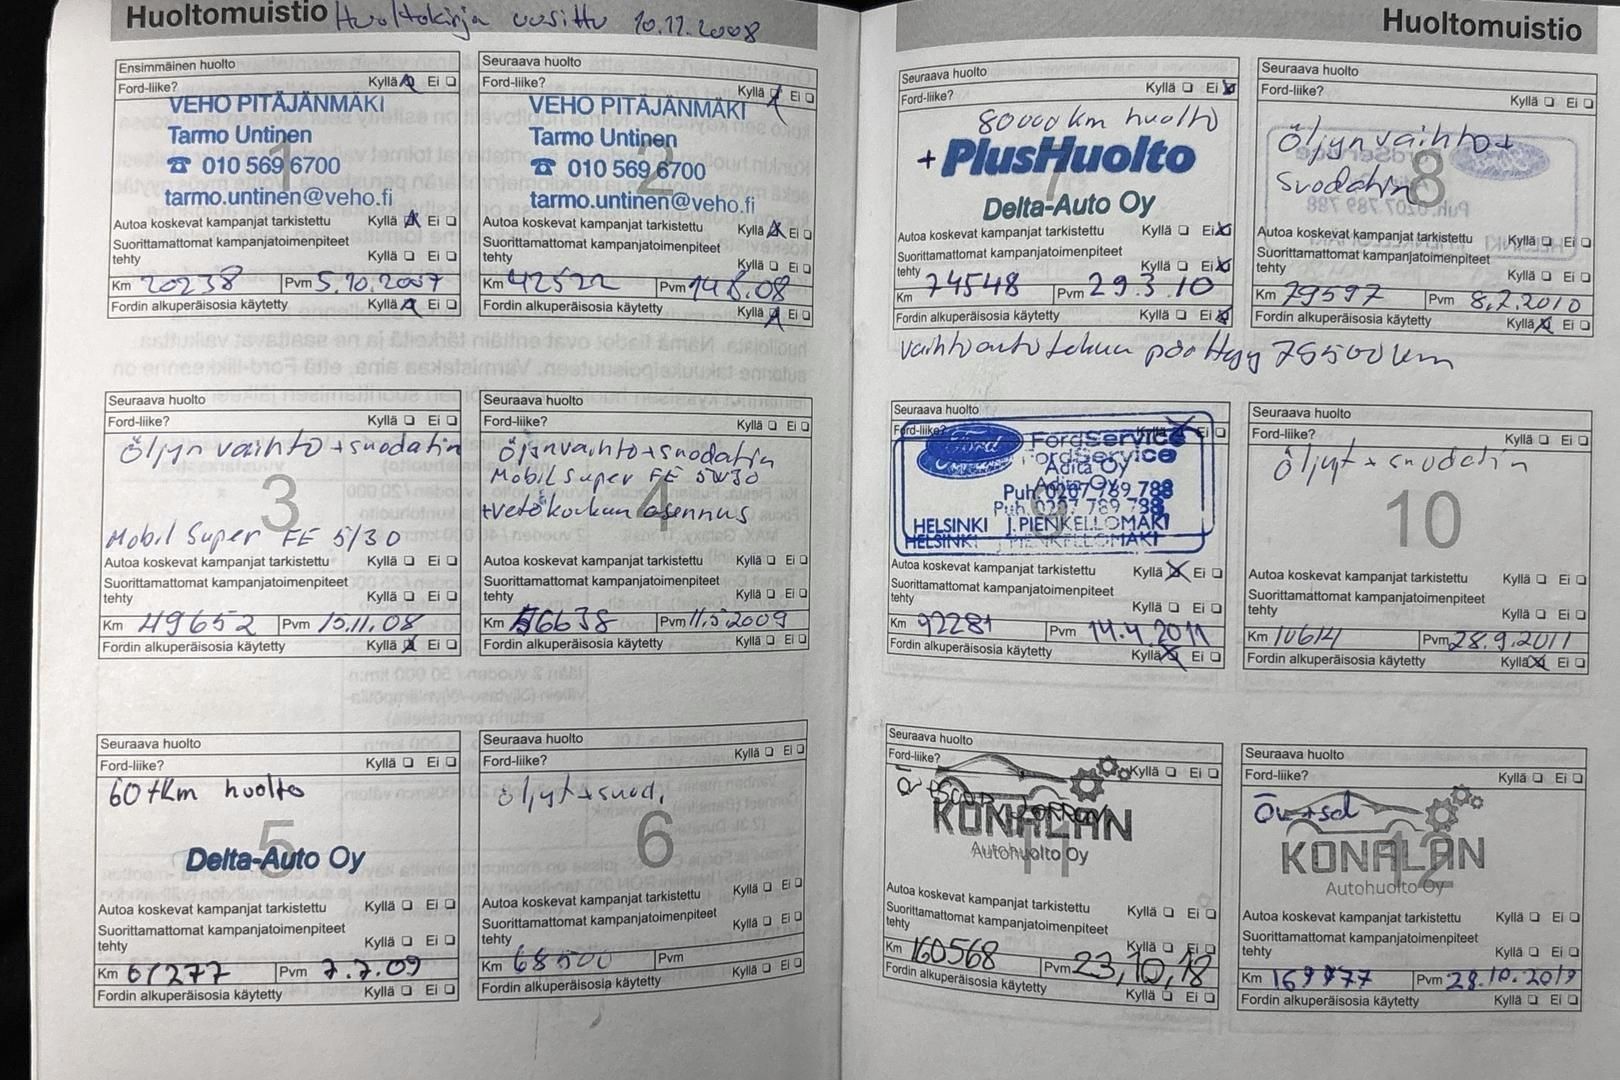 Huoltomuistio Huoltokirja uusittu 10.12.2008
Ensimmäinen huolto
Ford-liike? Kyllä Ei
VEHO PITÄJÄNMÄKI
Tarmo Untinen
1
☎ 010 569 6700
tarmo.untinen@veho.fi
Autoa koskevat kampanjat tarkistettu Kyllä Ei
Suorittamattomat kampanjatoimenpiteet
tehty Kyllä Ei
Km 20238 Pvm 5.10.2007
Fordin alkuperäisosia käytetty Kyllä Ei
Seuraava huolto
Ford-liike? Kyllä Ei
VEHO PITÄJÄNMÄKI
Tarmo Untinen
2
☎ 010 569 6700
tarmo.untinen@veho.fi
Autoa koskevat kampanjat tarkistettu Kyllä Ei
Suorittamattomat kampanjatoimenpiteet
tehty Kyllä Ei
Km 42522 Pvm
Fordin alkuperäisosia käytetty Kyllä Ei
Seuraava huolto
Ford-liike? Kyllä Ei
Öljyn vaihto + suodatin
3
Mobil Super FE 5/30
Autoa koskevat kampanjat tarkistettu Kyllä Ei
Suorittamattomat kampanjatoimenpiteet
tehty Kyllä Ei
Km 49652 Pvm 15.11.08
Fordin alkuperäisosia käytetty Kyllä Ei
Seuraava huolto
Ford-liike? Kyllä Ei
Öljynvaihto+suodatin
Mobil Super FE 5W30
4
+vetokoukun asennus
Autoa koskevat kampanjat tarkistettu Kyllä Ei
Suorittamattomat kampanjatoimenpiteet
tehty Kyllä Ei
Km 56638 Pvm 11.5.2009
Fordin alkuperäisosia käytetty Kyllä Ei
Seuraava huolto
Ford-liike? Kyllä Ei
60tkm huolto
5
Delta-Auto Oy
Autoa koskevat kampanjat tarkistettu Kyllä Ei
Suorittamattomat kampanjatoimenpiteet
tehty Kyllä Ei
Km 61277 Pvm 7.7.09
Fordin alkuperäisosia käytetty Kyllä Ei
Seuraava huolto
Ford-liike? Kyllä Ei
öljyt+suod.
6
Autoa koskevat kampanjat tarkistettu Kyllä Ei
Suorittamattomat kampanjatoimenpiteet
tehty Kyllä Ei
Km 68500 Pvm
Fordin alkuperäisosia käytetty Kyllä Ei
Huoltomuistio
Seuraava huolto
Ford-liike? Kyllä Ei
80000km huolto
+ PlusHuolto
7
Delta-Auto Oy
Autoa koskevat kampanjat tarkistettu Kyllä Ei
Suorittamattomat kampanjatoimenpiteet
tehty Kyllä Ei
Km 74548 Pvm 29.3.10
Fordin alkuperäisosia käytetty Kyllä Ei
vaihtoautotakuu päättyy 75500km
Seuraava huolto
Ford-liike? Kyllä Ei
Öljyn vaihto+
suodatin
8
Autoa koskevat kampanjat tarkistettu Kyllä Ei
Suorittamattomat kampanjatoimenpiteet
tehty Kyllä Ei
Km 79597 Pvm 8.7.2010
Fordin alkuperäisosia käytetty Kyllä Ei
Seuraava huolto
Ford-liike? Kyllä Ei
Ford FordService
FordService
Adita Oy
Adita Oy
Puh. 0207 789 788
Puh. 0207 789 788
9
HELSINKI J.PIENKELLOMÄKI
HELSINKI J.PIENKELLOMÄKI
Autoa koskevat kampanjat tarkistettu Kyllä Ei
Suorittamattomat kampanjatoimenpiteet
tehty Kyllä Ei
Km 92281 Pvm 14.4.2011
Fordin alkuperäisosia käytetty Kyllä Ei
Seuraava huolto
Ford-liike? Kyllä Ei
Öljyt + suodatin
10
Autoa koskevat kampanjat tarkistettu Kyllä Ei
Suorittamattomat kampanjatoimenpiteet
tehty Kyllä Ei
Km Pvm 28.9.2011
Fordin alkuperäisosia käytetty Kyllä Ei
Seuraava huolto
Ford-liike? Kyllä Ei
KONALAN
Autohuolto Oy
11
Autoa koskevat kampanjat tarkistettu Kyllä Ei
Suorittamattomat kampanjatoimenpiteet
tehty Kyllä Ei
Km 160568 Pvm 23,10,18
Fordin alkuperäisosia käytetty Kyllä Ei
Seuraava huolto
Ford-liike? Kyllä Ei
Öv+sd
KONALAN
12
Autohuolto Oy
Autoa koskevat kampanjat tarkistettu Kyllä Ei
Suorittamattomat kampanjatoimenpiteet
tehty Kyllä Ei
Km Pvm 28.10.2019
Fordin alkuperäisosia käytetty Kyllä Ei